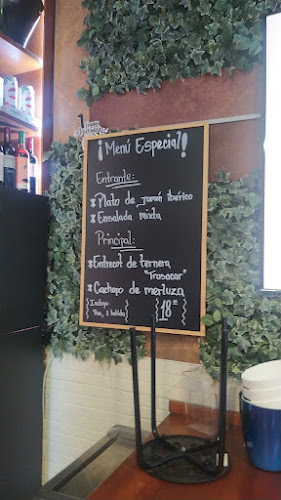 ¡Menú Especial!
Entrante:
Plato de jamón ibérico
Ensalada mixta
Principal:
Entrecot de ternera
"Trasacar"
Cachopo de merluza
Incluye
Pan, 1 bebida
18€